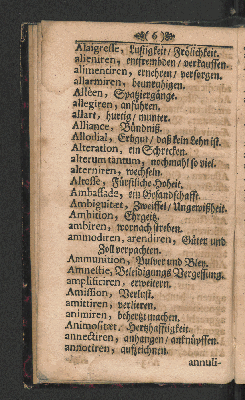 6
Alaigresse, Lustigkeit/ Frölichkeit.
alieniren, entfrembden/ verkauffen.
alimentiren, ernehren/ versorgen.
allarmiren, beunruhigen.
Alléen, Spatziergänge.
allegiren, anführen.
allart, hurtig/ munter.
Alliance, Bündniß.
Allodial, Erbgut/ daß kein Lehn ist.
Alteration, ein Schrecken.
alterum tantum, nochmahl so viel.
alterniren, wechseln.
Altesse, Fürstliche Hoheit.
Ambassade, ein Gesandschafft.
Ambiguitæt, Zweiffel/ Ungewißheit.
Ambition, Ehrgeitz.
ambiren, wornach streben.
ammodiren, arendiren, Güter und
Zoll verpachten.
Ammunition, Pulver und Bley.
Amnestie, Beleidigungs Vergessung.
amplificiren, erweitern.
Amission, Verlust.
amittiren, verlieren.
animiren, behertzt machen.
Animositæt, Hertzhafftigkeit.
annectiren, anhangen/ anknüpffen.
annotiren, auffzeichnen.
annuli-